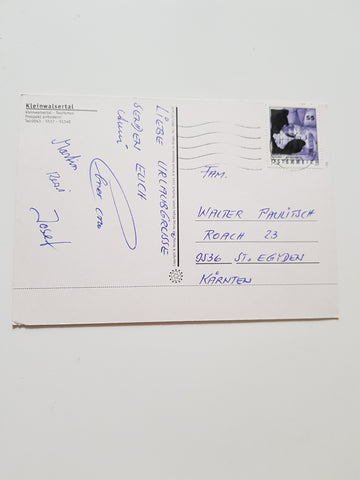 Kleinwalsertal
Kleinwalsertal - Tourismus
Prospekt anfordern:
LIEBE URLAUBSGRÜSSE
SENDEN EUCH
Martin
Resi
Josef
55
ÖSTERREICH
FAM.
WALTER PAULITSCH
ROACH 23
9536 ST. EGYDEN
KÄRNTEN